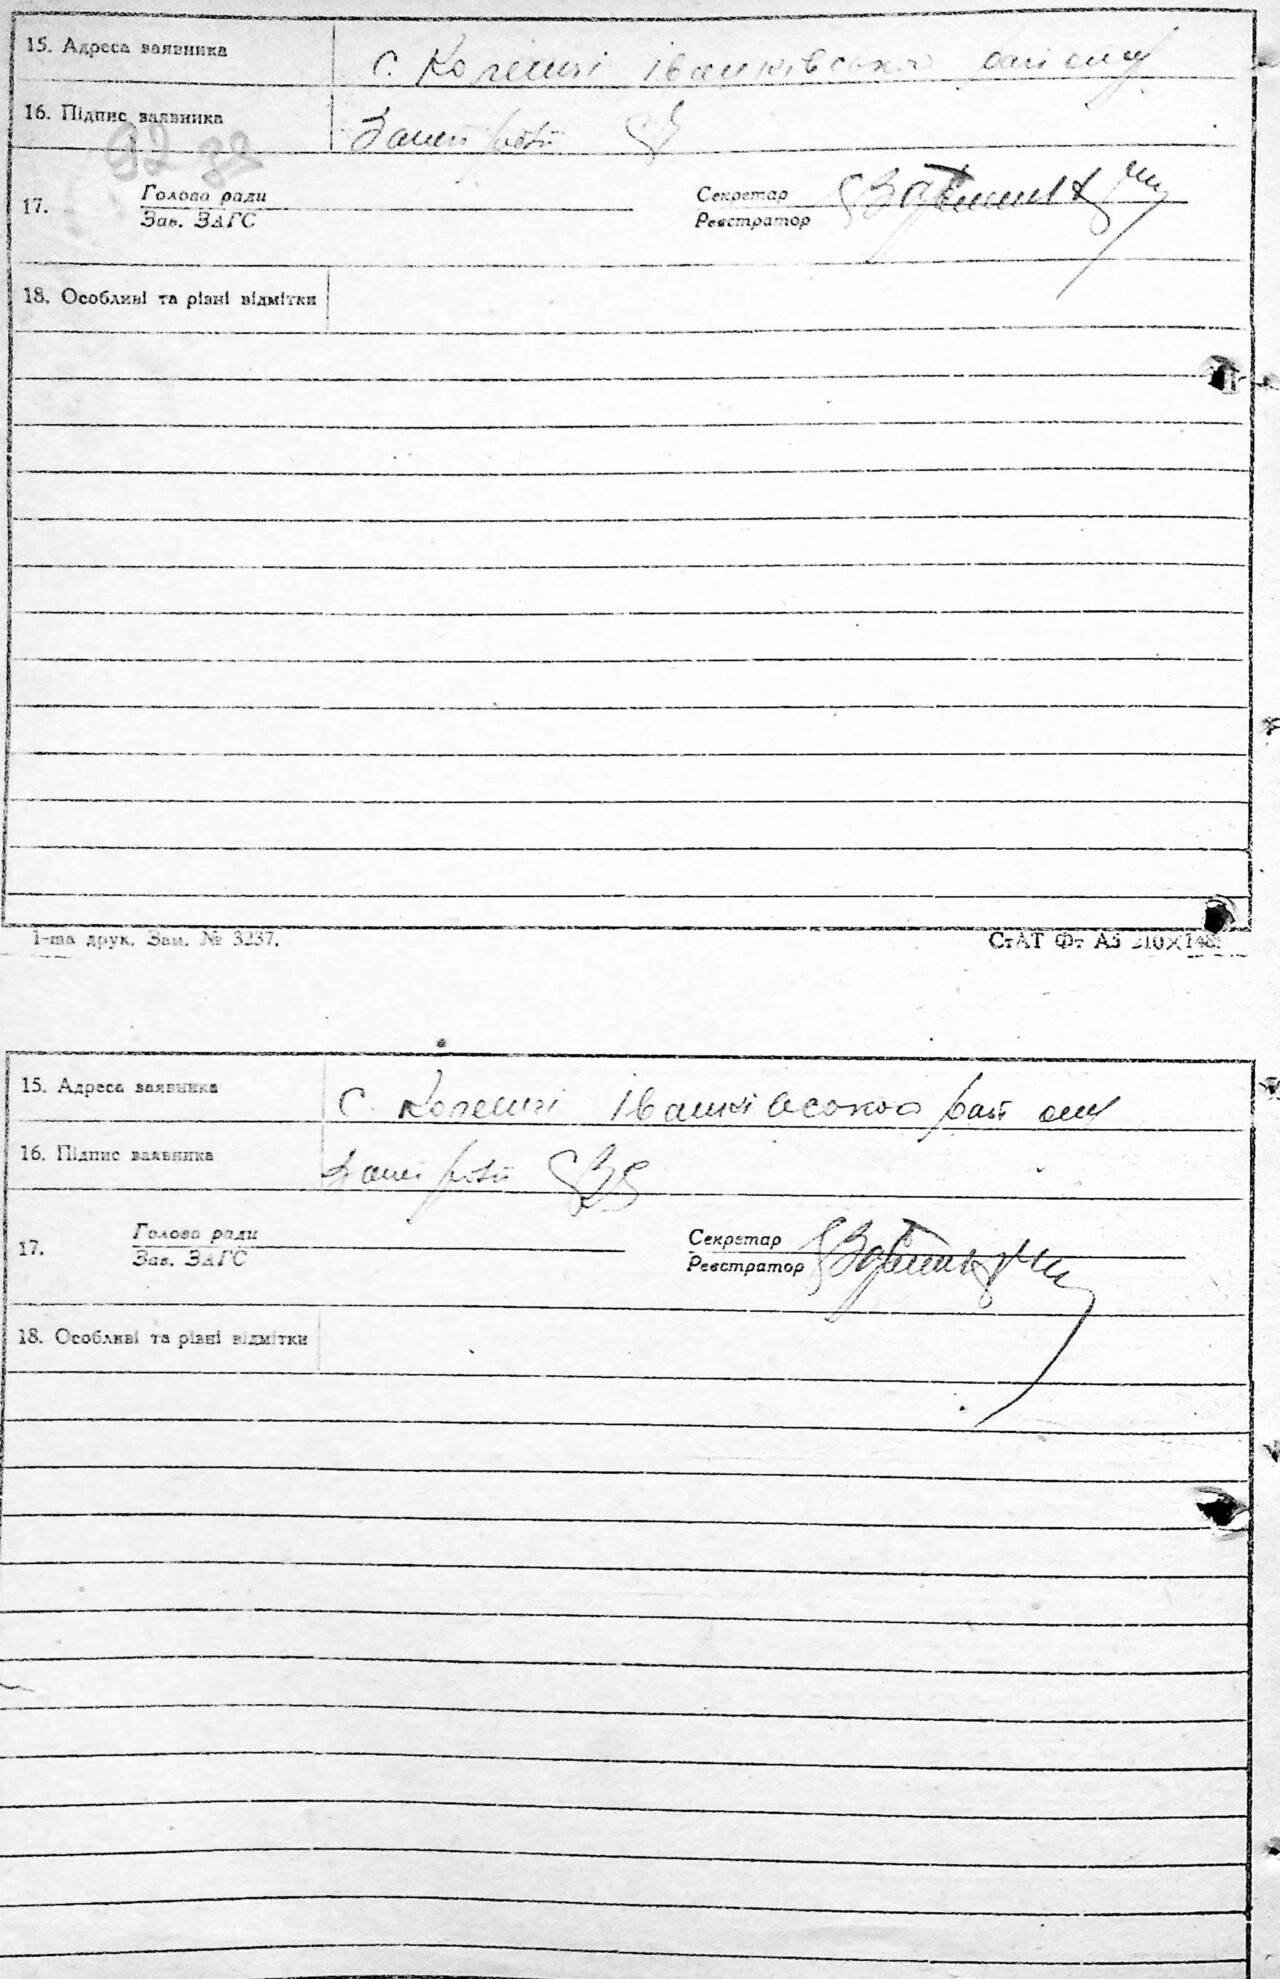 15. Адреса заявника с. Коленці Іванківського району
16. Підпис заявника
92 39
17. Голова ради Секретар
Зав. ЗАГС Реєстратор
18. Особливі та різні відмітки
1-ша друк. Зам. № 3237. СтАТ Фт А5 210×148.
15. Адреса заявника с. Коленці Іванківського району
16. Підпис заявника
17. Голова ради Секретар
Зав. ЗАГС Реєстратор
18. Особливі та різні відмітки